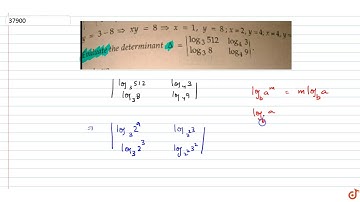 37900
y = 3-8 ⇒ xy = 8 ⇒ x = 1, y = 8; x = 2, y = 4; x = 4, y =
the determinant Δ = | log₃ 512 log₄ 3 |
| log₃ 8 log₄ 9 |
| log₃ 512 log₄ 3 |
| log₃ 8 log₄ 9 |
log_b a^m = m log_b a
log_b a
⇒ | log₃ 2⁹ log_2² 3 |
| log₃ 2³ log_2² 3² |